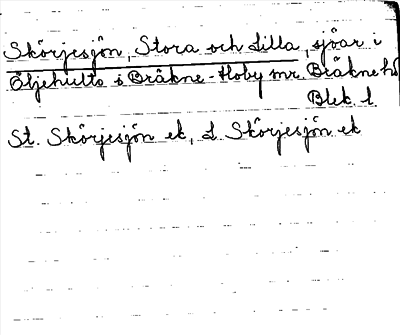 Skörjesjön, Stora och Lilla, sjöar i
Öljehults i Bräkne-Hoby mr. Bräkne hd
Blek. l.
St. Skörjesjön ek, L. Skörjesjön ek